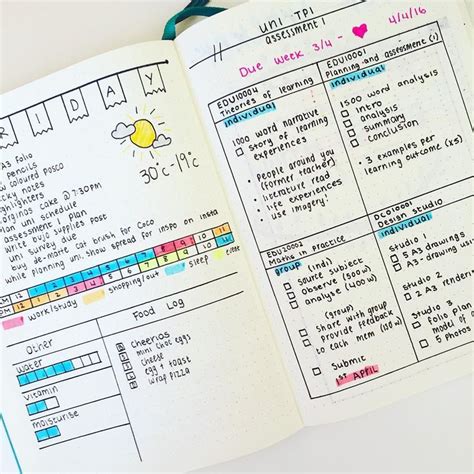 RIDAY
A3 folio
pencils
coloured posco
sticky notes
highlighters
Giorginos cus cake @ 7:30pm
plan uni schedule
assessment 1 plan
write bujo supplies post
uni survey due
buy de-matte cat brush for Coco
while planning uni, show spread for inspo on insta
30°c - 19°c
AM 12 1 2 3 4 5 6 7 8 9 10 11
PM 12 1 2 3 4 5 6 7 8 9 10 11
work/study shopping/out sleep
Other
water
vitamin
moisturise
Food Log
Cheerios
mini choc eggs
cheese
egg + toast
wrap pizza
UNI TP1
assessment 1
Due week 3/4 - 4/4/16
EDU10004
Theories of learning
individual
1000 word narrative
story of learning
experiences
• people around you
(former teacher)
• literature read
• life experiences
• use imagery!
EDU10001
Planning and assessment (1)
individual
1500 word analysis
intro
analysis
summary
conclusion
• 3 examples per
learning outcome (x5)
EDU20002
Maths in practice
group (indi)
source subject
observe (500w)
analyse (400w)
share with group
provide feedback
to each mem (100w)
Submit
1st APRIL
DCO10001
Design studio
individual
Studio 1
5 A3 drawings
A3
studio 2
rendered
A3
studio 3
folio
model of
5 photo